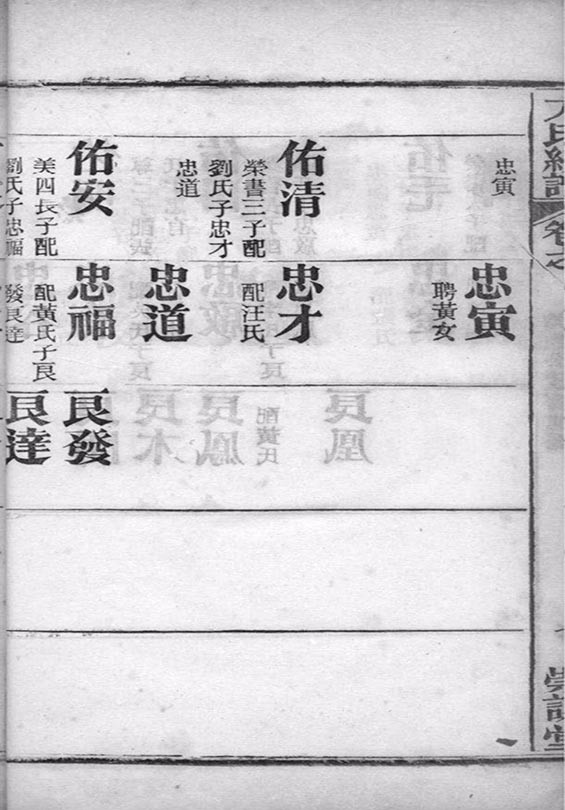 卷之
忠寅
佑清
榮書三子配
劉氏子忠才
忠道
佑安
美四長子配
劉氏子忠福
忠寅
聘黃女
忠才
配汪氏
忠道
忠福
配黃氏子良
發良達
良發
良達